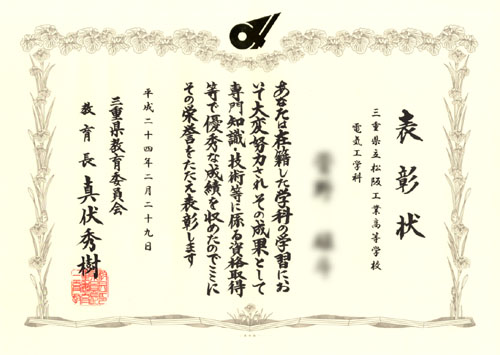 表彰状
三重県立松阪工業高等学校
電気工学科
あなたは在籍した学科の学習にお
いて大変努力されその成果として
専門知識・技術等に係る資格取得
等で優秀な成績を収めたのでここに
その栄誉をたたえ表彰します
平成二十四年二月二十九日
三重県教育委員会
教育長 真伏秀樹